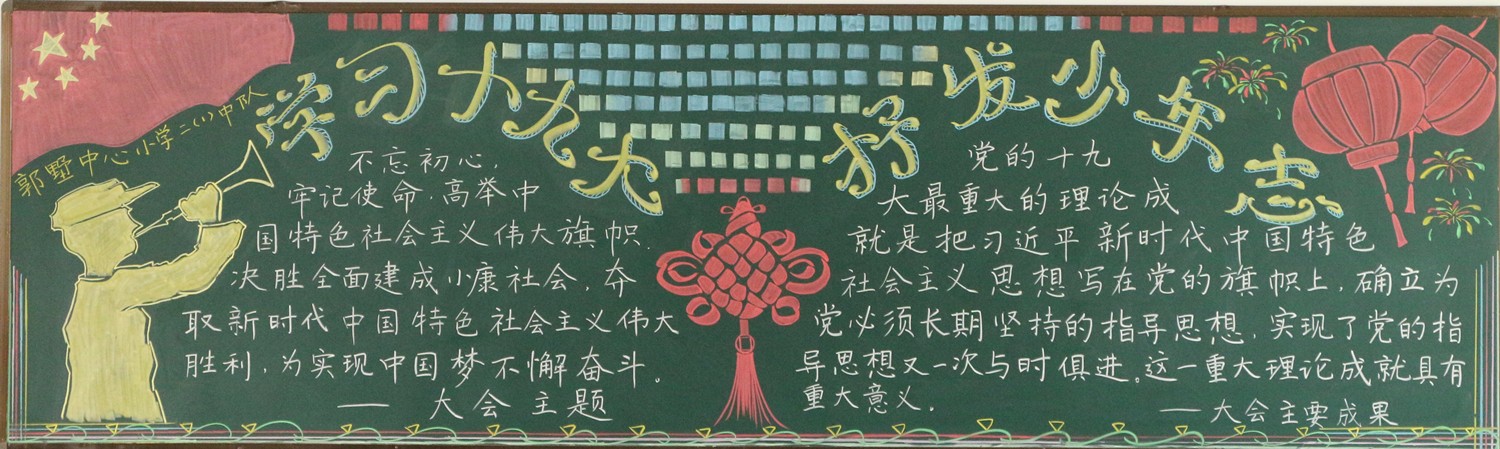 学习十九大 抒发少年志
郭墅中心小学二(1)中队
不忘初心,
牢记使命.高举中
国特色社会主义伟大旗帜.
决胜全面建成小康社会.夺
取新时代中国特色社会主义伟大
胜利,为实现中国梦不懈奋斗。
——大会主题
党的十九
大最重大的理论成
就是把习近平新时代中国特色
社会主义思想写在党的旗帜上,确立为
党必须长期坚持的指导思想,实现了党的指
导思想又一次与时俱进。这一重大理论成就具有
重大意义。
——大会主要成果